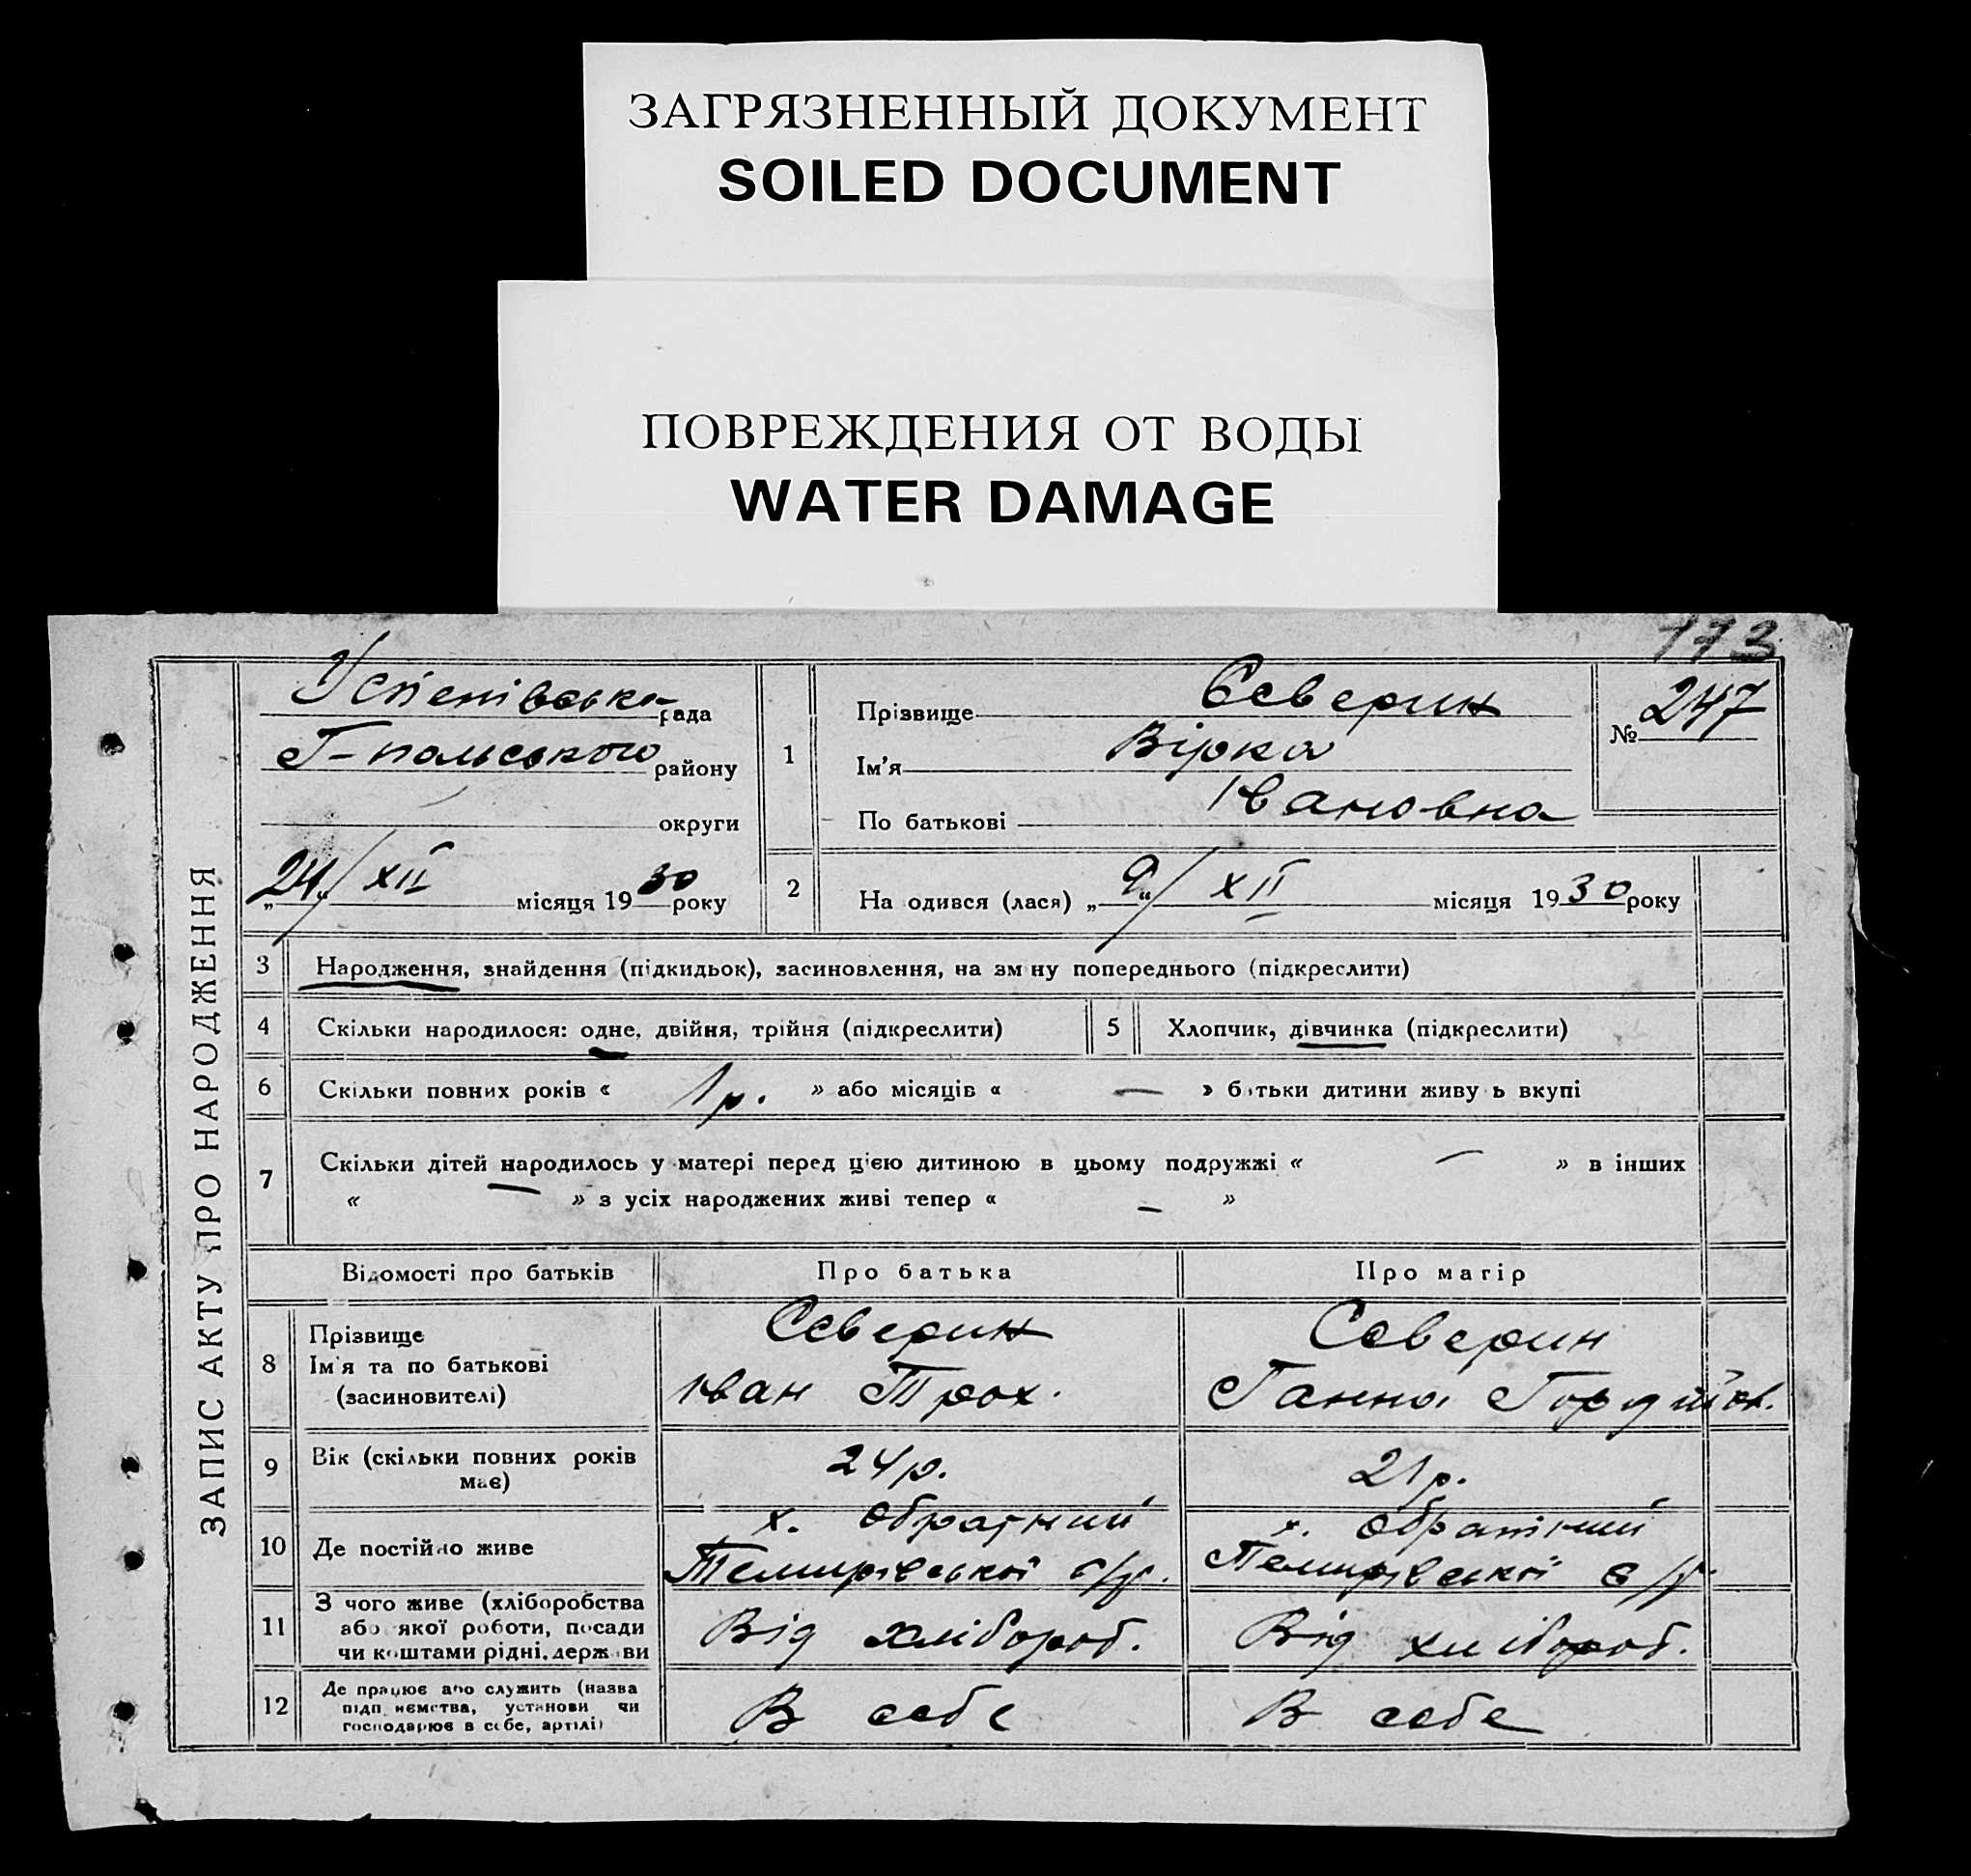 ЗАГРЯЗНЕННЫЙ ДОКУМЕНТ
SOILED DOCUMENT
ПОВРЕЖДЕНИЯ ОТ ВОДЫ
WATER DAMAGE
173
ЗАПИС АКТУ ПРО НАРОДЖЕННЯ
Успенівська рада
Г-польського району
округи
24/XII місяця 1930 року
1
Прізвище Сєверин
Ім'я Вірка
По батькові Івановна
№ 247
2
На одився (лася) „9“/XII місяця 1930 року
3 Народження, знайдення (підкидьок), засиновлення, на зм ну попереднього (підкреслити)
4 Скільки народилося: одне, двійня, трійня (підкреслити)
5 Хлопчик, дівчинка (підкреслити)
6 Скільки повних років « 1 р. » або місяців « — » б тьки дитини живу ь вкупі
7 Скільки дітей народилось у матері перед цією дитиною в цьому подружжі « — » в інших
« — » з усіх народжених живі тепер « — »
Відомості про батьків Про батька Про матір
8 Прізвище
Ім'я та по батькові
(засиновителі)
Сєверин
Іван Трох.
Сєверин
Ганна Гордійов.
9 Вік (скільки повних років
має)
24 р.
21 р.
10 Де постійно живе
х. Обратний
Темирівської с/р.
х. Обратний
Темирівської с/р.
11 З чого живе (хліборобства
або якої роботи, посади
чи коштами рідні, держави
Від хлібороб.
Від хлібороб.
12 Де працює або служить (назва
підп иємства, установи чи
господарює в себе, артілі)
В себе
В себе